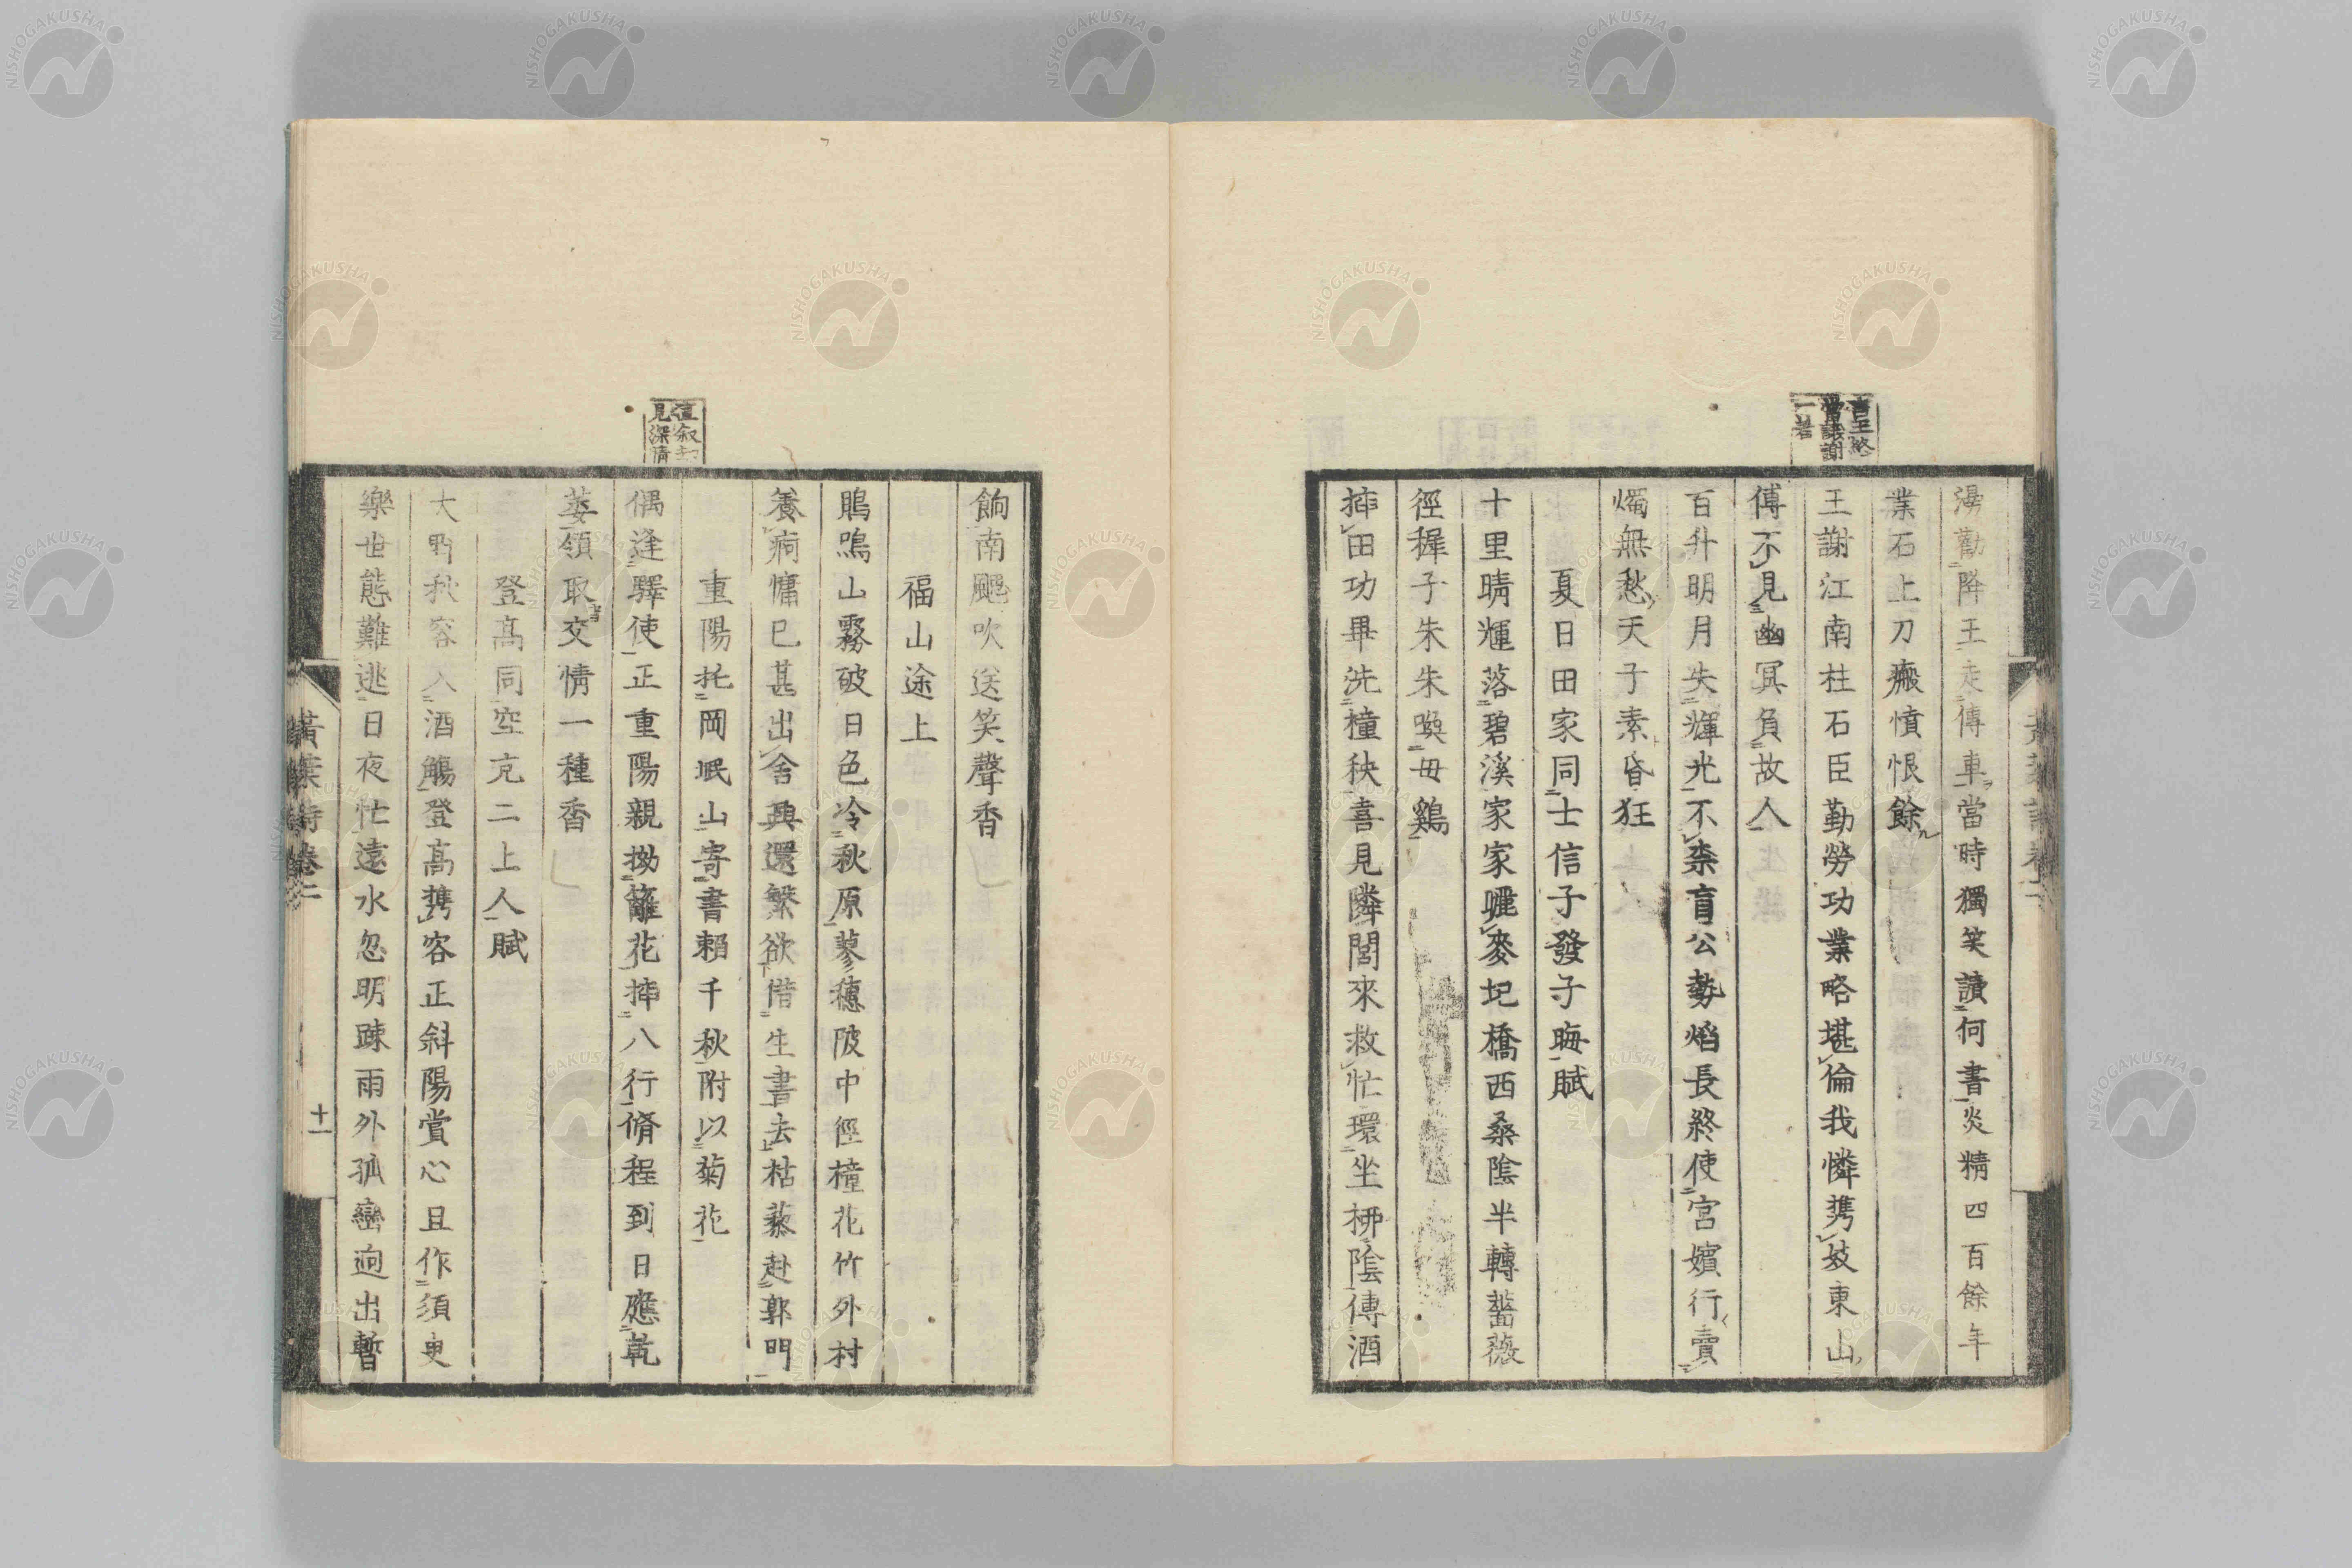 漫勸降王走傳車當時獨笑讀何書炎精四百餘年
業石上刀瘢憤恨餘
王謝江南柱石臣勤勞功業略堪倫我憐携妓東山
傅不見幽冥負故人
百升明月失輝光不柰盲公勢焰長終使宮嬪行賣
燭無愁天子素昏狂
夏日田家同士信子發子晦賦
十里晴輝落碧溪家家曬麥圯橋西桑陰半轉薔薇
徑穉子朱朱喚母鷄
挿田功畢洗橦秧喜見隣閭來救忙環坐柳陰傳酒
餉南颸吹送笑聲香
福山途上
鵙鳴山霧破日色冷秋原蓼穗陂中徑橦花竹外村
養痾慵已甚出舍興還繁欲借生書去枯藜赴郭門
重陽托岡岷山寄書賴千秋附以菊花
直叙却
見深情
偶逢驛使正重陽親拗籬花挿八行脩程到日應乾
萎領取交情一種香
登高同空充二上人賦
大野秋容入酒觴登高携客正斜陽賞心且作須臾
樂世態難逃日夜忙遠水忽明踈雨外孤巒逈出暫
黃葉詩卷二
十一